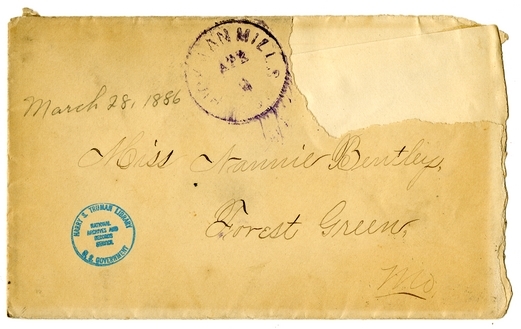 MILLS
APR
March 28, 1886
Miss Nannie Bentley,
Forest Green,
Mo
HARRY S. TRUMAN LIBRARY
NATIONAL
ARCHIVES AND
RECORDS
SERVICE
U. S. GOVERNMENT